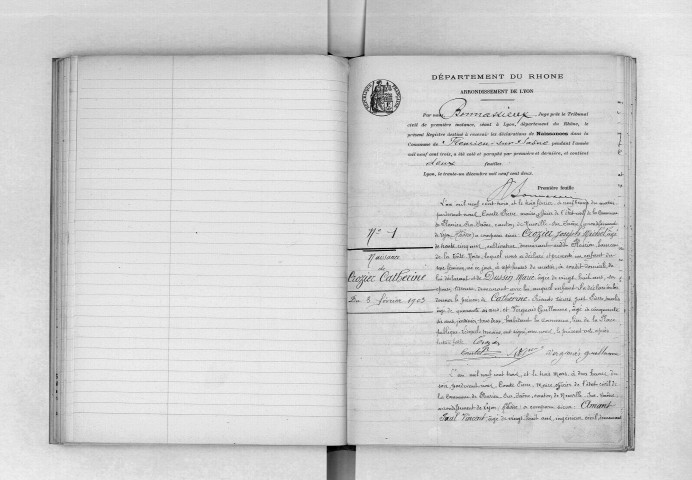 DÉPARTEMENT DU RHONE
ARRONDISSEMENT DE LYON
Par nous Bonnassieux Juge près le Tribunal
civil de première instance, séant à Lyon, département du Rhône, le
présent Registre destiné à recevoir les déclarations de Naissances dans la
Commune de Fleurieu-sur-Saône pendant l'année
mil neuf cent trois, a été coté et paraphé par première et dernière, et contient
deux feuilles
Lyon, le trente-un décembre mil neuf cent deux.
Première feuille
No 1
Naissance
de
Crozier Catherine
Du 3 février 1903
L'an mil neuf cent trois et le trois février à neuf heures du matin
pardevant nous, Comte Pierre, maire officier de l'état civil de la Commune
de Fleurieu sur Saône, canton de Neuville sur Saône, arrondissement
de Lyon (Rhône) a comparu sieur Crozier Joseph Michel, âgé
de trente cinq ans, cultivateur, demeurant audit Fleurieu, hameau
lequel nous a déclaré et présenté un enfant du
sexe féminin, né ce jour, à sept heures du matin, à son dit domicile de
lui déclarant et de Dussin Marie, âgée de vingt huit ans, son
épouse, demeurant avec lui, auquel enfant il a déclaré vouloir
donner le prénom de Catherine.
âgé de quarante six ans, et Guillaume, âgé de cinquante
publique, lesquels témoins ont signé avec nous, le présent acte après
lecture faite. Crozier
guillaume
L'an mil neuf cent trois et le trois Mars, à deux heures du
soir, pardevant nous, Comte Pierre, Maire, officier de l'état civil de
la Commune de Fleurieu sur Saône, canton de Neuville sur Saône,
arrondissement de Lyon (Rhône) a comparu sieur Amant
Paul Vincent, âgé de vingt huit ans, ingénieur civil, demeurant